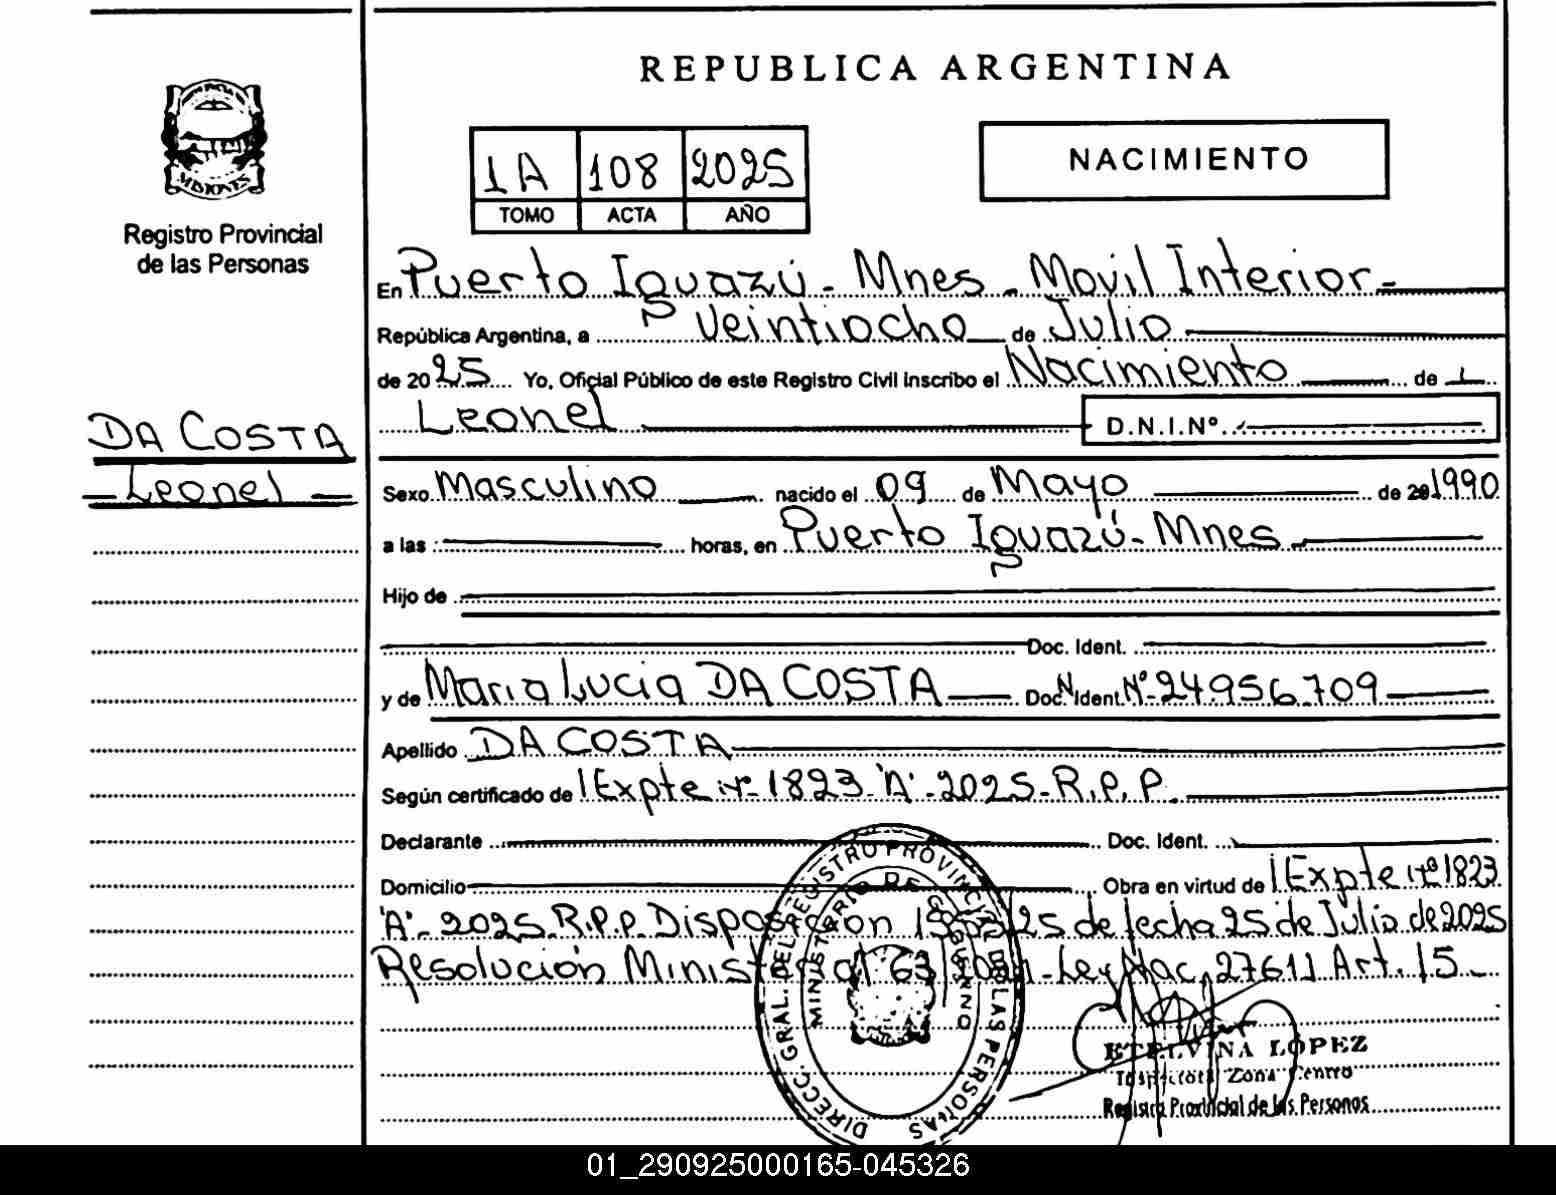 REPUBLICA ARGENTINA
MISIONES
Registro Provincial
de las Personas
1A 108 2025
TOMO ACTA AÑO
NACIMIENTO
En Puerto Iguazú - Mnes - Movil Interior -
República Argentina, a Veintiocho de Julio
de 2025 Yo, Oficial Público de este Registro Civil inscribo el Nacimiento de
Leonel D.N.I.Nº
DA COSTA
Leonel
Sexo Masculino nacido el 09 de Mayo de 20 1990
a las horas, en Puerto Iguazú - Mnes
Hijo de
Doc. Ident.
y de Maria Lucia DA COSTA Doc. Ident. Nº 24.956.709
Apellido DA COSTA
Según certificado de Expte nº 1823 "A" - 2025 - R.P.P.
Declarante Doc. Ident.
Domicilio Obra en virtud de Expte nº 1823
"A" - 2025 R.P.P. Disposición de fecha 25 de Julio de 2025
Resolución Ministerial Ley Nac. 27611 Art. 15
DIRECC. GRAL. DEL REGISTRO PROVINCIAL DE LAS PERSONAS
MINISTERIO DE GOBIERNO
ETELVINA LÓPEZ
Inspectora Zona Centro
Registro Provincial de las Personas
01_290925000165-045326